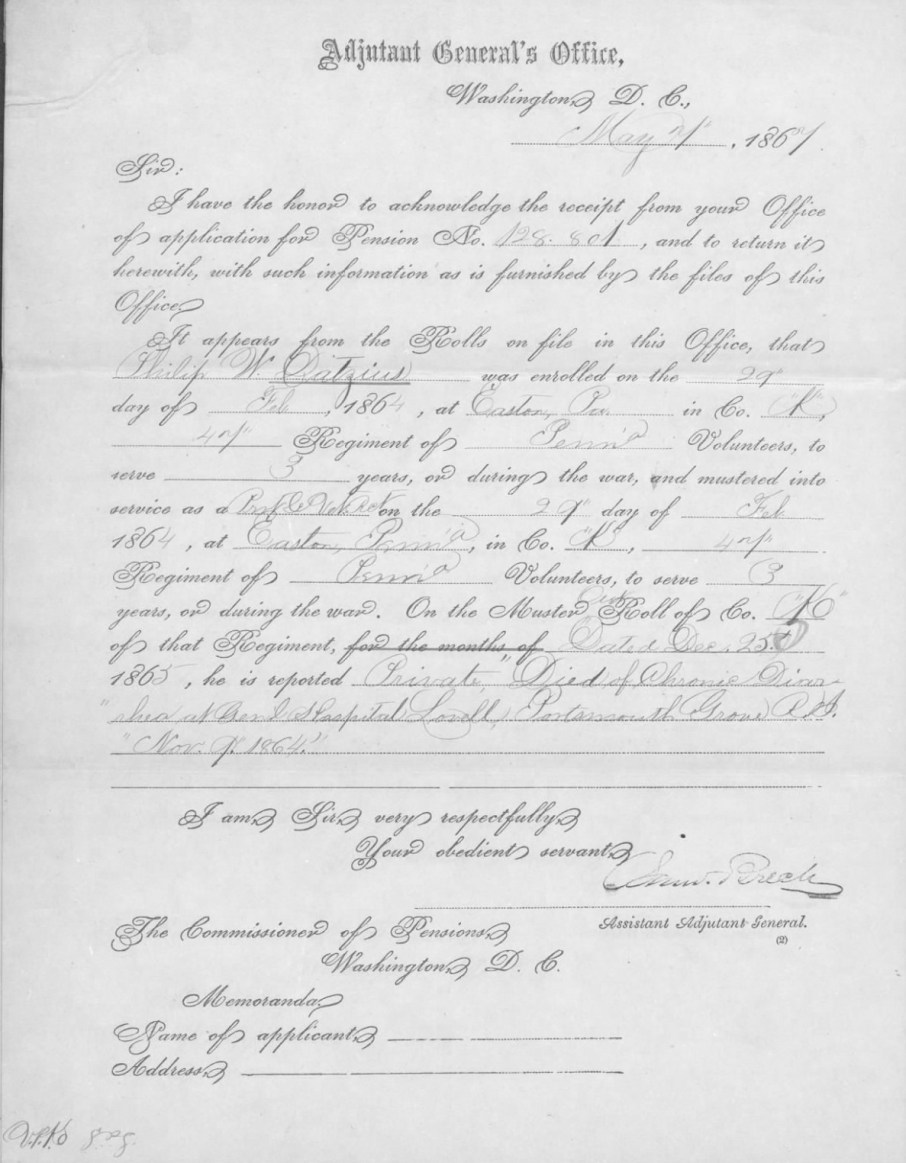 Adjutant General's Office,
Washington, D. C.,
May , 1867.
Sir:
I have the honor to acknowledge the receipt from your Office
of application for Pension No. 128.801, and to return it
herewith, with such information as is furnished by the files of this
Office.
It appears from the Rolls on file in this Office, that
Philip W. Datzius was enrolled on the 29
day of Feb, 1864, at Easton, Pa. in Co. "K",
47" Regiment of Penn'a Volunteers, to
serve 3 years, or during the war, and mustered into
service as a on the 29" day of Feb
1864, at Easton, Penn'a, in Co. "K", 47"
Regiment of Penn'a Volunteers, to serve 3
years, or during the war. On the Muster Out Roll of Co. "K"
of that Regiment, for the months of Dated Dec. 25th
1865, he is reported "Private," "Died of Chronic Diar-
"rhea at Genl Hospital Lovell, Portsmouth Grove R. I.
"Nov. 9. 1864."
I am, Sir, very respectfully,
Your obedient servant,
Saml. Breck
Assistant Adjutant General.
(2)
The Commissioner of Pensions,
Washington, D. C.
Memoranda,
Name of applicant,
Address,